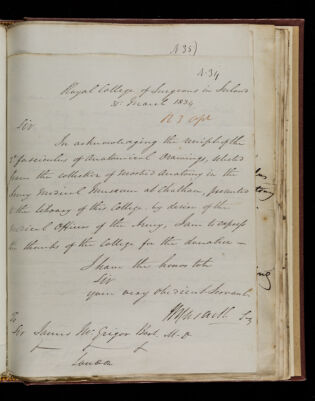 N 35)
N. 34
Royal College of Surgeons in Ireland
31 March 1834
R 3 Apl
Sir
In acknowledging the receipt of the
fasciculus of Anatomical Drawings, selected
from the collection of morbid Anatomy in the
Army Medical Museum at Chatham, presented
to the library of this College by desire of the
Medical Officers of the Army, I am to express
the thanks of the College for the donation —
I have the honor to be
Sir
your very obedient Servant
To
Sir James McGrigor Bart. M.D
London